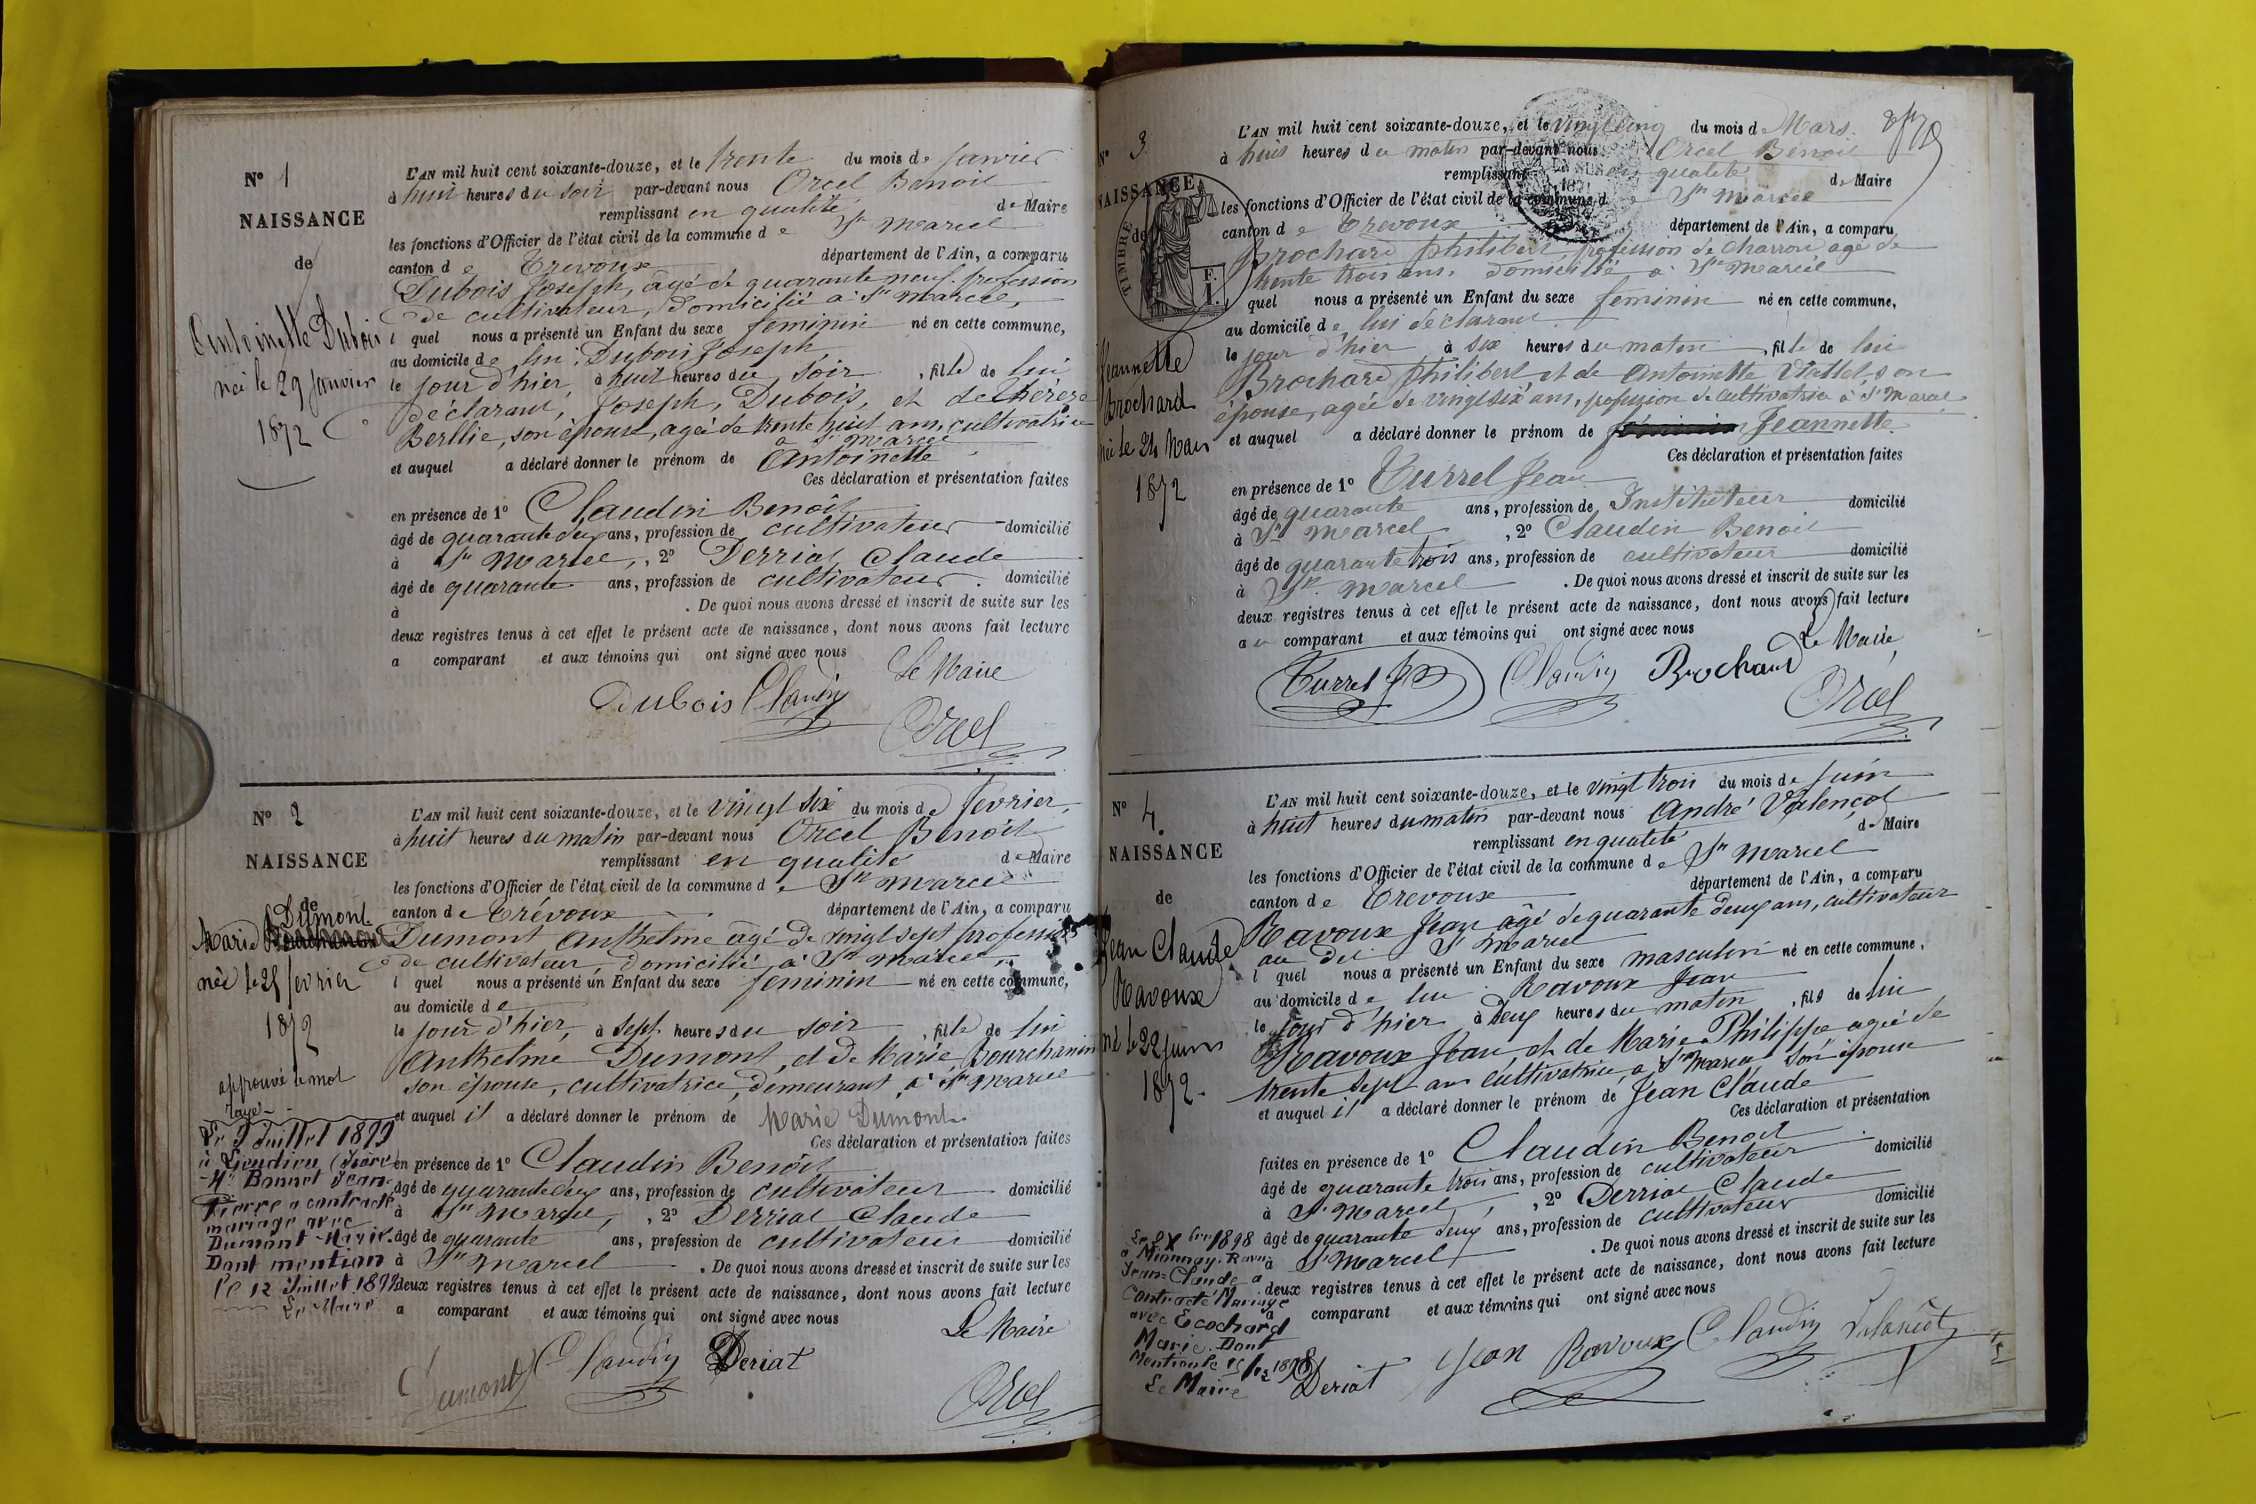 N° 1
NAISSANCE
de
Antoinette Dubois
née le 29 janvier
1872
L'AN mil huit cent soixante-douze, et le trente du mois de janvier
à huit heures du soir par-devant nous Orcel Benoit
remplissant en qualité de Maire
les fonctions d'Officier de l'état civil de la commune de St Marcel
canton de Trevoux département de l'Ain, a comparu
Dubois Joseph, agé de quarante neuf profession
de cultivateur, domicilié à St Marcel,
l quel nous a présenté un Enfant du sexe feminin né en cette commune,
au domicile de lui, Dubois Joseph
le jour d'hier, à huit heures du soir, fille de lui
déclarant, Joseph, Dubois, et de Thérèse
Berllie, son épouse, agée de trente huit ans, cultivatrice
à St Marcel
et auquel a déclaré donner le prénom de Antoinette
Ces déclaration et présentation faites
en présence de 1° Claudin Benoit
âgé de quarante deux ans, profession de cultivateur domicilié
à St Marcel, 2° Derriat Claude
âgé de quarante ans, profession de cultivateur. domicilié
à . De quoi nous avons dressé et inscrit de suite sur les
deux registres tenus à cet effet le présent acte de naissance, dont nous avons fait lecture
a comparant et aux témoins qui ont signé avec nous
Le Maire
Dubois Claudin
Orcel
N° 2
NAISSANCE
de
Dumont
Marie
née le 25 fevrier
1872
approuvé le mot
rayé
Le 9 Juillet 1899
à (Isère)
Mr Bonnet Jean-
Pierre a contracté
mariage avec
Dumont Marie.
Dont mention
le 12 Juillet 1899
Le Maire
L'AN mil huit cent soixante-douze, et le vingt six du mois de fevrier,
à huit heures du matin par-devant nous Orcel Benoit
remplissant en qualité de Maire
les fonctions d'Officier de l'état civil de la commune de St Marcel
canton de Trévoux département de l'Ain, a comparu
Dumont Anthelme agé de vingt sept profession
de cultivateur, domicilié à St Marcel,
l quel nous a présenté un Enfant du sexe feminin né en cette commune,
au domicile de
le jour d'hier, à sept heures du soir, fille de lui
Anthelme Dumont, et de Marie Bourchanin
son épouse, cultivatrice, demeurant à St Marcel
et auquel il a déclaré donner le prénom de Marie Dumont.
Ces déclaration et présentation faites
en présence de 1° Claudin Benoit
âgé de quarante deux ans, profession de cultivateur domicilié
à St Marcel, 2° Derriat Claude
âgé de quarante ans, profession de cultivateur domicilié
à St Marcel . De quoi nous avons dressé et inscrit de suite sur les
deux registres tenus à cet effet le présent acte de naissance, dont nous avons fait lecture
a comparant et aux témoins qui ont signé avec nous
Le Maire
Dumont Claudin Deriat
Orcel
N° 3
NAISSANCE
de
TIMBRE
F.
I.
Jeannette
Brochard
née le 24 Mars
1872
L'AN mil huit cent soixante-douze, et le vingt cinq du mois de Mars.
à huit heures du matin par-devant nous Orcel Benoit
remplissant en qualité de Maire
les fonctions d'Officier de l'état civil de la commune de St Marcel
canton de Trevoux département de l'Ain, a comparu
Brochard Philibert profession de charron agé de
trente trois ans. domicilié à St Marcel
quel nous a présenté un Enfant du sexe feminin né en cette commune,
au domicile de lui declarant.
le jour d'hier à six heures du matin, fille de lui
Brochard Philibert et de Antoinette Viallet, son
épouse, agée de vingt six ans, profession de cultivatrice à St Marcel
et auquel a déclaré donner le prénom de Jeannette.
Ces déclaration et présentation faites
en présence de 1° Turrel Jean
âgé de quarante ans, profession de Instituteur domicilié
à St Marcel, 2° Claudin Benoit
âgé de quarante trois ans, profession de cultivateur domicilié
à St Marcel . De quoi nous avons dressé et inscrit de suite sur les
deux registres tenus à cet effet le présent acte de naissance, dont nous avons fait lecture
au comparant et aux témoins qui ont signé avec nous
Le Maire
Turrel Claudin Brochard
Orcel
N° 4.
NAISSANCE
de
Jean Claude
Ravoux
né le 22 juin
1872.
1898
à Mionnay, Ravoux
Jean-Claude a
contracté Mariage
avec Ecochard
Marie. Dont
Mention le 1898
Le Maire
L'AN mil huit cent soixante-douze, et le vingt trois du mois de juin
à huit heures du matin par-devant nous André Valençot
remplissant en qualité de Maire
les fonctions d'Officier de l'état civil de la commune de St Marcel
canton de Trevoux département de l'Ain, a comparu
Ravoux Jean âgé de quarante deux ans, cultivateur
au dit St Marcel
l quel nous a présenté un Enfant du sexe masculin né en cette commune,
au domicile de lui Ravoux Jean
le jour d'hier à deux heures du matin, fils de lui
Ravoux Jean, et de Marie Philippe agée de
trente sept ans cultivatrice à St Marcel son épouse
et auquel il a déclaré donner le prénom de Jean Claude
Ces déclaration et présentation
faites en présence de 1° Claudin Benoit
âgé de quarante trois ans, profession de cultivateur domicilié
à St Marcel, 2° Derriat Claude
âgé de quarante deux ans, profession de cultivateur domicilié
à St Marcel . De quoi nous avons dressé et inscrit de suite sur les
deux registres tenus à cet effet le présent acte de naissance, dont nous avons fait lecture
a comparant et aux témoins qui ont signé avec nous
Deriat Jean Ravoux Claudin Valençot